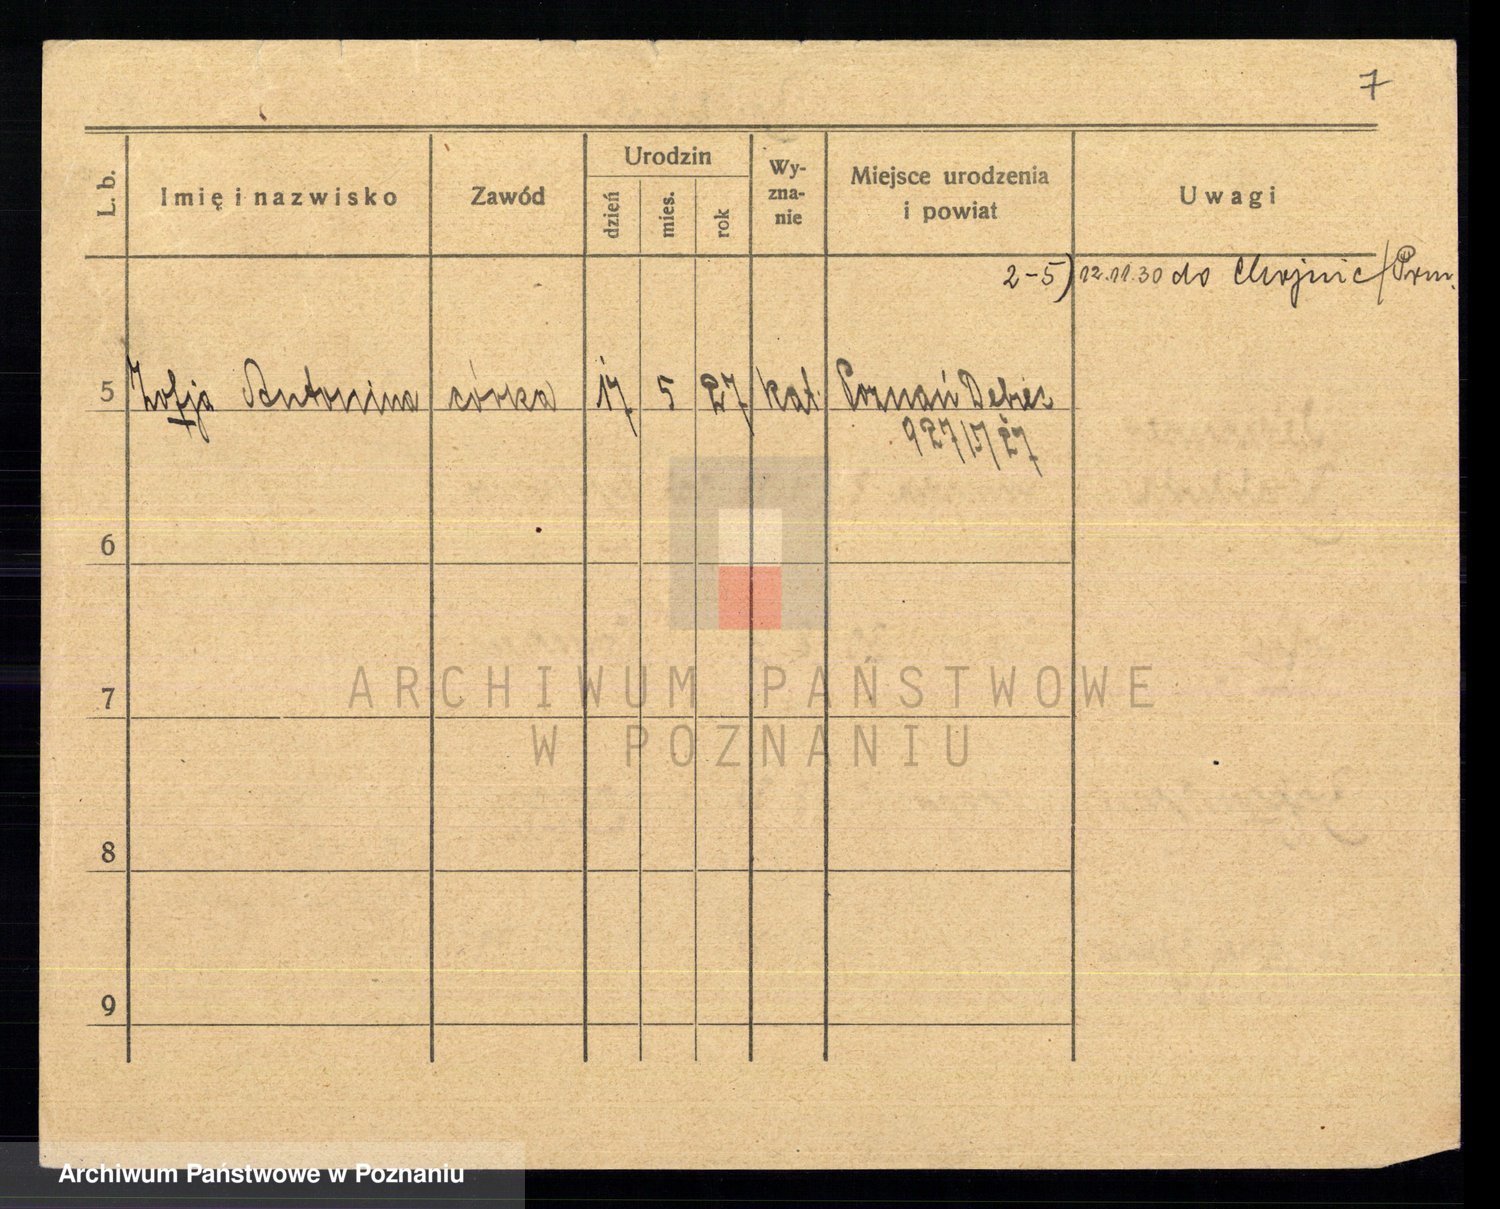 7
L. b.
Imię i nazwisko
Zawód
Urodzin
dzień
mies.
rok
Wy-
zna-
nie
Miejsce urodzenia
i powiat
Uwagi
2-5) 12.11.30 do Chojnic / Pom.
5 Zofja Antonina córka 17 5 27 kat. Poznań Dębiec
6
7
8
9
ARCHIWUM PAŃSTWOWE
W POZNANIU
Archiwum Państwowe w Poznaniu